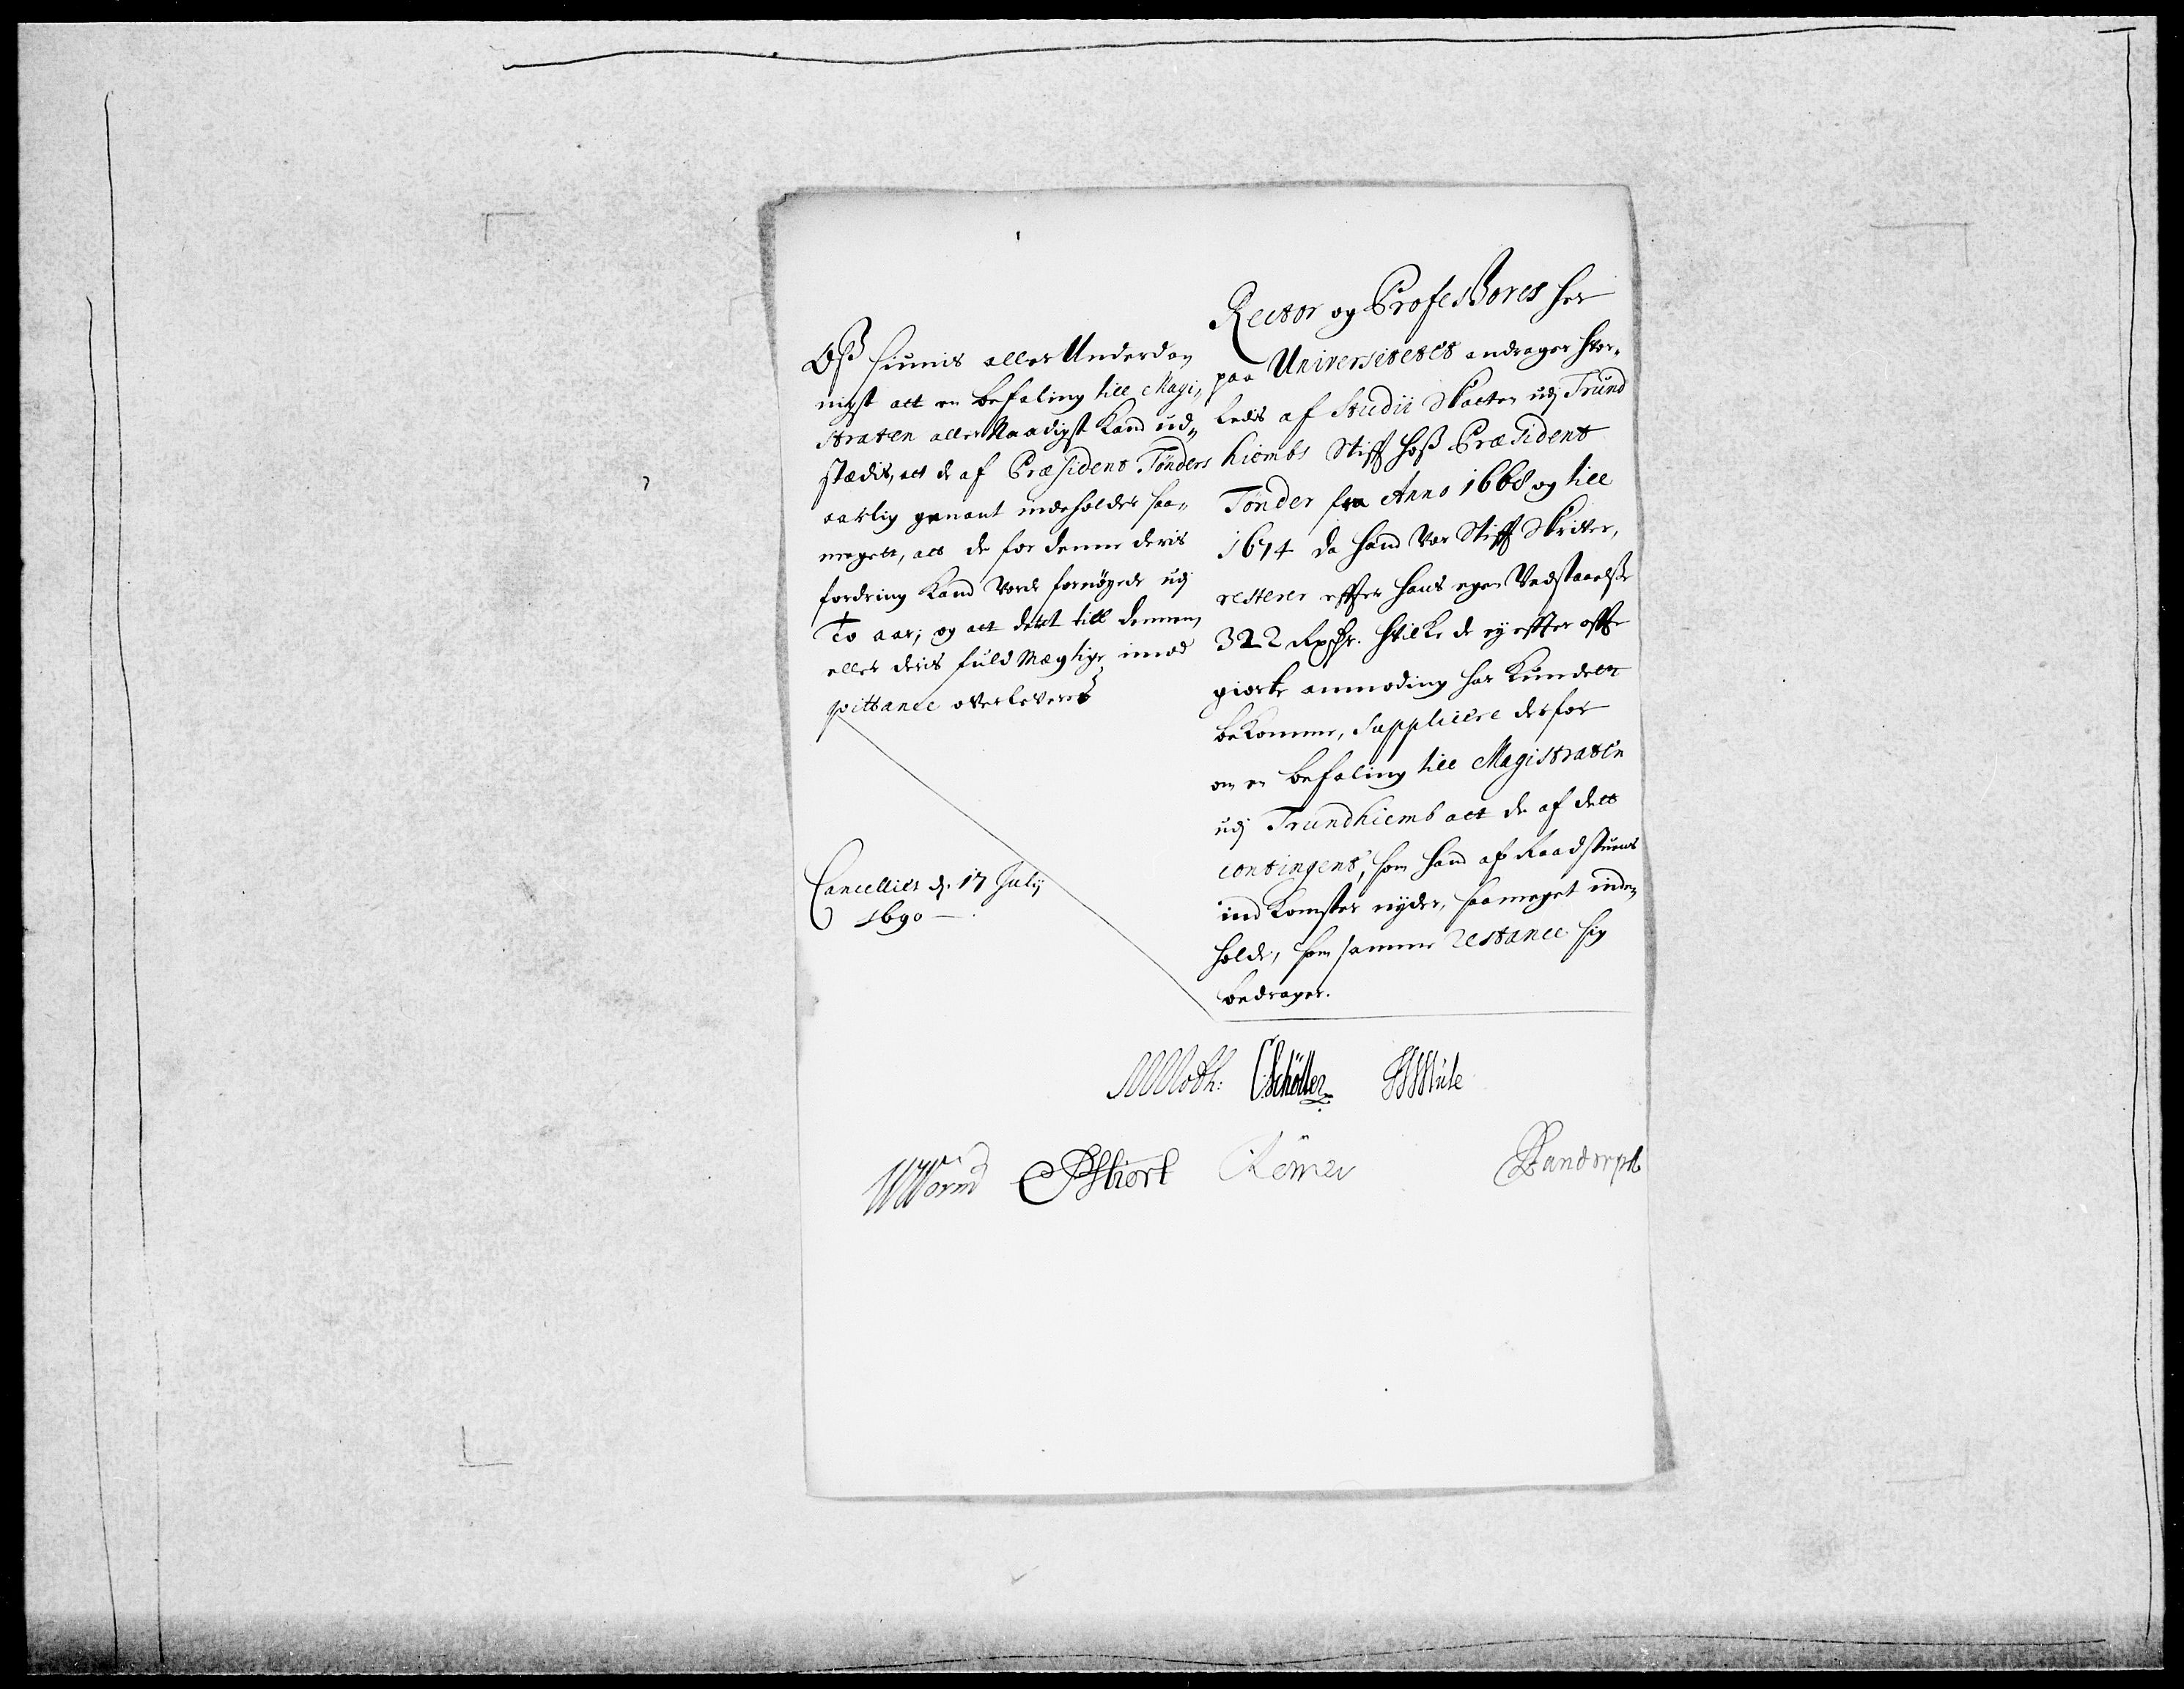 Rector og Professores her
paa Universitetet andrager hvor,,
ledis af Studii Skatten udj Trund
hiembs Stift hoß Præsident
Tønder fra Anno 1668 og till
1674 da hand var Stift Skriver,
resterer efter hans egen Vedstaaelse
322 Rixdlr. hvilke de ej efter ofte
giorte anmoding har kundet
bekomme, Supplicere derfor
om en befaling till Magistraten
udj Trundhiemb att de af dett
contingent, som hand af Raadstuens
indkomster nyder, saameget inde,,
holde, som samme restance sig
bedrager.
Oß siunis aller Underdan
nigst att en befaling till Magi,,
straten aller Naadigst kand ud,,
stædis, att de af Præsident Tønders
aarlig genant indeholder saa,,
meget, att de for denne deris
fordring kand vorde fornøyede udj
To aar; og att dett till dennem,
eller deris fuldmægtige imod
qvittance overleveres
Cancelliet d. 17 Julij
1690
MMoth: CSchøller HMule
WWorm PSkiort Rømer Bandorph